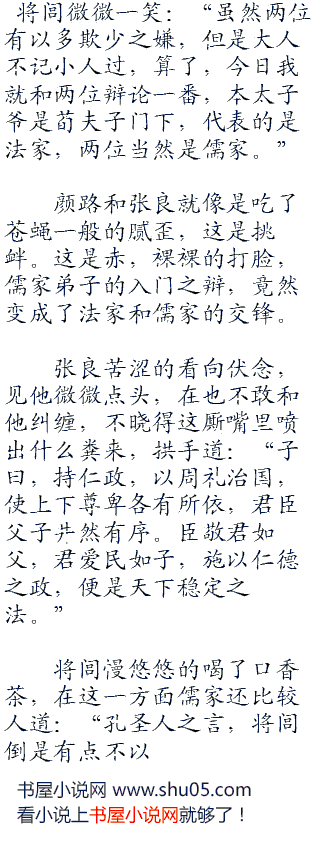 将闾微微一笑：“虽然两位
有以多欺少之嫌，但是大人
不记小人过，算了，今日我
就和两位辩论一番，本太子
爷是荀夫子门下，代表的是
法家，两位当然是儒家。”
颜路和张良就像是吃了
苍蝇一般的腻歪，这是挑
衅。这是赤，裸裸的打脸，
儒家弟子的入门之辩，竟然
变成了法家和儒家的交锋。
张良苦涩的看向伏念，
见他微微点头，在也不敢和
他纠缠，不晓得这厮嘴里喷
出什么粪来，拱手道：“子
曰，持仁政，以周礼治国，
使上下尊卑各有所依，君臣
父子井然有序。臣敬君如
父，君爱民如子，施以仁德
之政，便是天下稳定之
法。”
将闾慢悠悠的喝了口香
茶，在这一方面儒家还比较
人道：“孔圣人之言，将闾
倒是有点不以
书屋小说网 www.shu05.com
看小说上书屋小说网就够了！